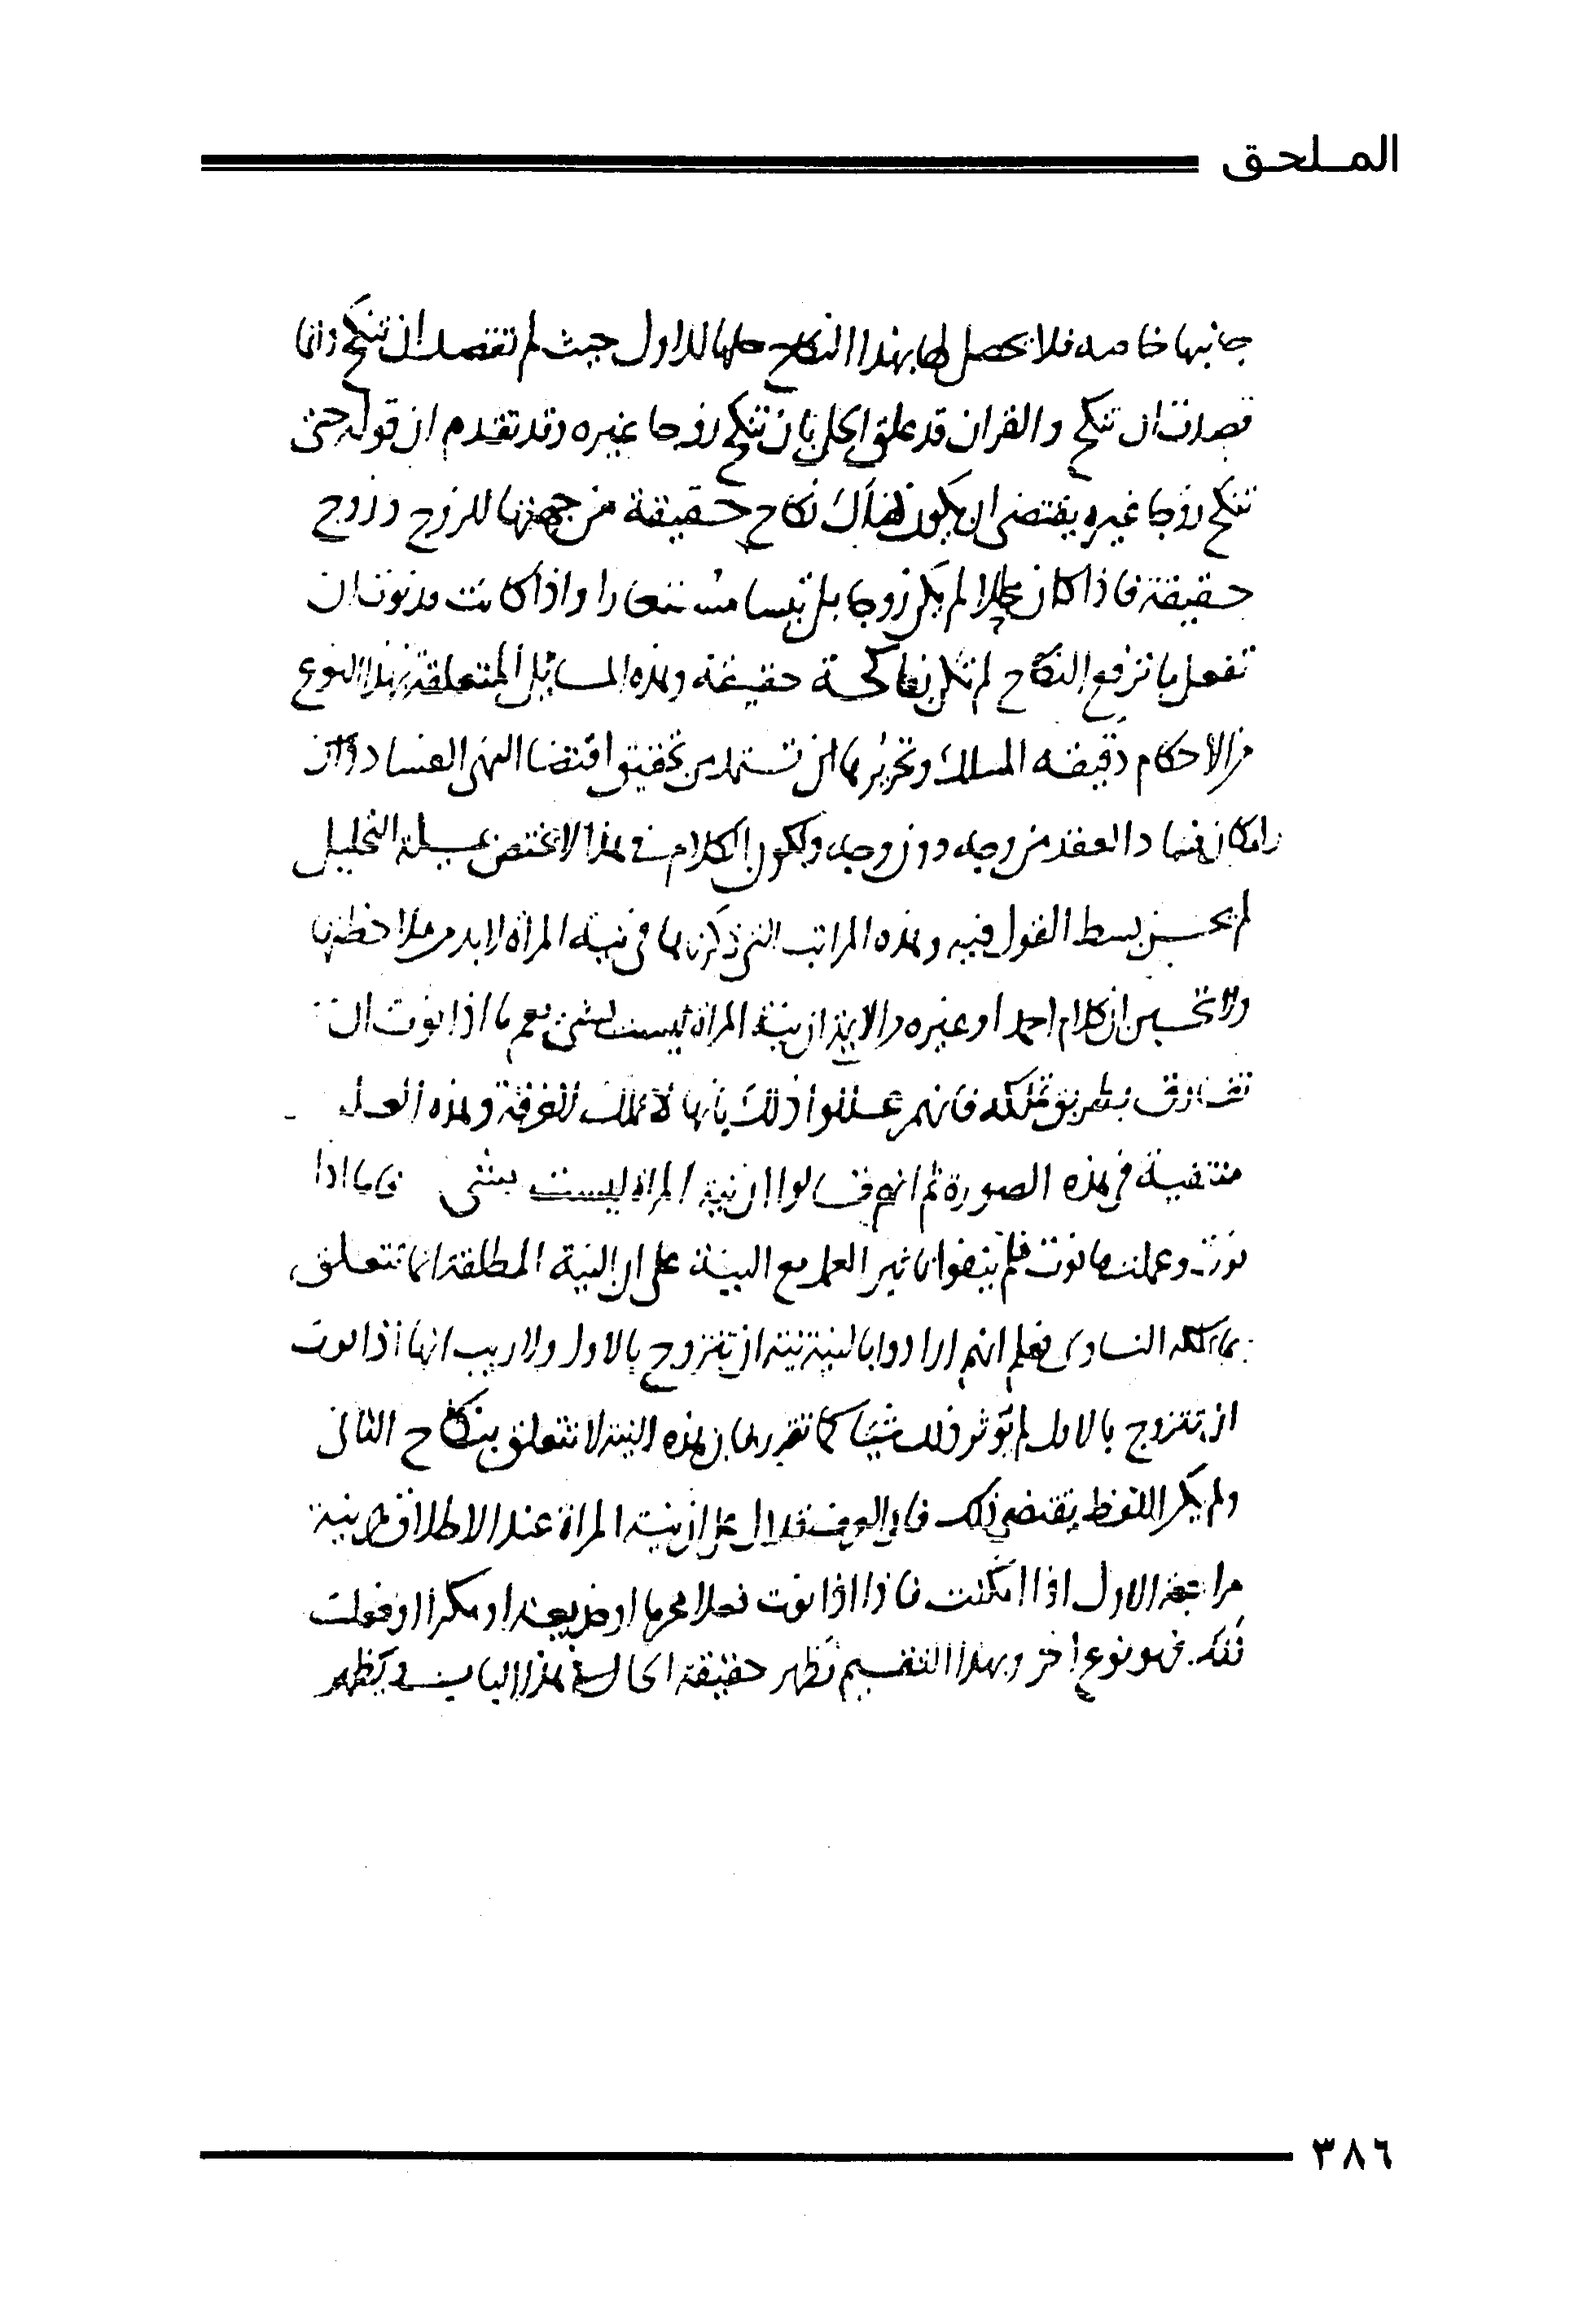 الملحق
جانبها خاصه فلا يحصل لها بهذا النكاح حلها للاول حيث لم تقصد ان تنكح وانما
قصدت ان تنكح والقران قد علق الحل بان تنكح زوجا غيره وقد تقدم ان قوله حتى
تنكح زوجا غيره يقتضى ان يكون هناك نكاح حقيقة من جهتها للزوج وزوج
حقيقة فاذا كان محللا لم يكن زوجا بل تيسا مستعارا واذا كانت قد نوت ان
تفعل ما ترفع النكاح لم تكن ناكحة حقيقة وهذه المسائل المتعلقة بهذا النوع
من الاحكام دقيقه المسلك وتحريرها تستمد من تحقيق اقتضا النهى الفساد
وامكان فساد العقد من وجه دون وجه ولكون الكلام فى هذا لا يختص بمسئلة التحليل
لم يحسن بسط القول فيه وهذه المراتب التى ذكرناها فى نية المراة لا بد من ملاحظتها
ولا تحسبن ان كلام احمد او غيره من الايمة ان نية المراة ليست بشى يعم ما اذا نوت ان
تفارق بطريق تملكه فانهم عللوا ذلك بانها لا تملك الفرقة وهذه العلة
منتفية فى هذه الصورة ثم انهم قالوا ان نية المراة ليست بشى فاما اذا
نوت وعملت ما نوت فلم ينفوا تاثير العمل مع النية على ان النية المطلقة انما تتعلق
بما يملكه الناوى فعلم انهم ارادوا بالنية نية ان تتزوج بالاول ولا ريب انها اذا نوت
ان تتزوج بالاول لم يوثر ذلك شيئا كما تقرر فان هذه النية لا تتعلق بنكاح الثانى
ولم يكن اللفظ يقتضى ذلك فان العرف قد دل على ان نية المراة عند الاطلاق هى نية
مراجعة الاول اذا امكنت فاذا اذا نوت فعلا محرما او خديعة او مكرا او فعلت
ذلك فهو نوع اخر وبهذا التقسيم تظهر حقيقة الحال فى هذا الباب ويظهر
٣٨٦